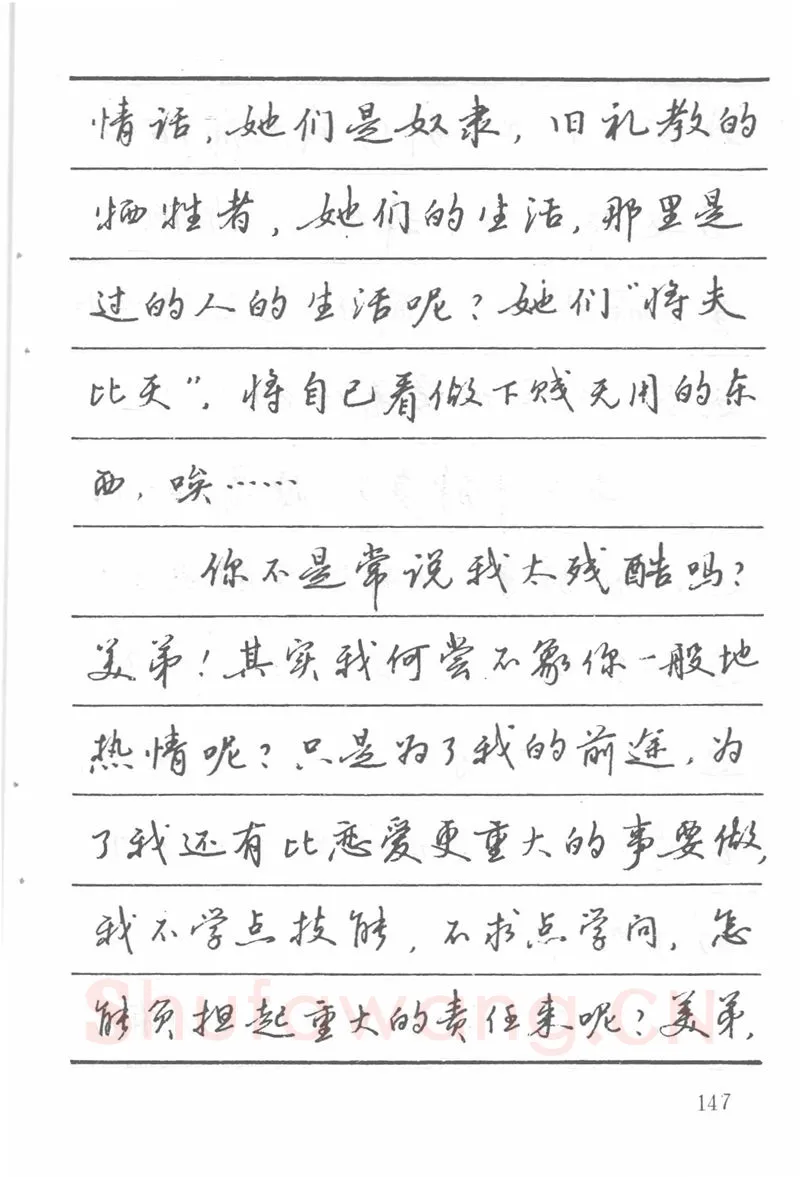 情话，她们是奴隶，旧礼教的
牺牲者，她们的生活，那里是
过的人的生活呢？她们“将夫
比天”，将自己看做下贱无用的东
西，唉……
你不是常说我太残酷吗？
美弟！其实我何尝不象你一般地
热情呢？只是为了我的前途，为
了我还有比恋爱更重大的事要做，
我不学点技能，不求点学问，怎
能负担起重大的责任来呢？美弟，
Shufawang.CN
147